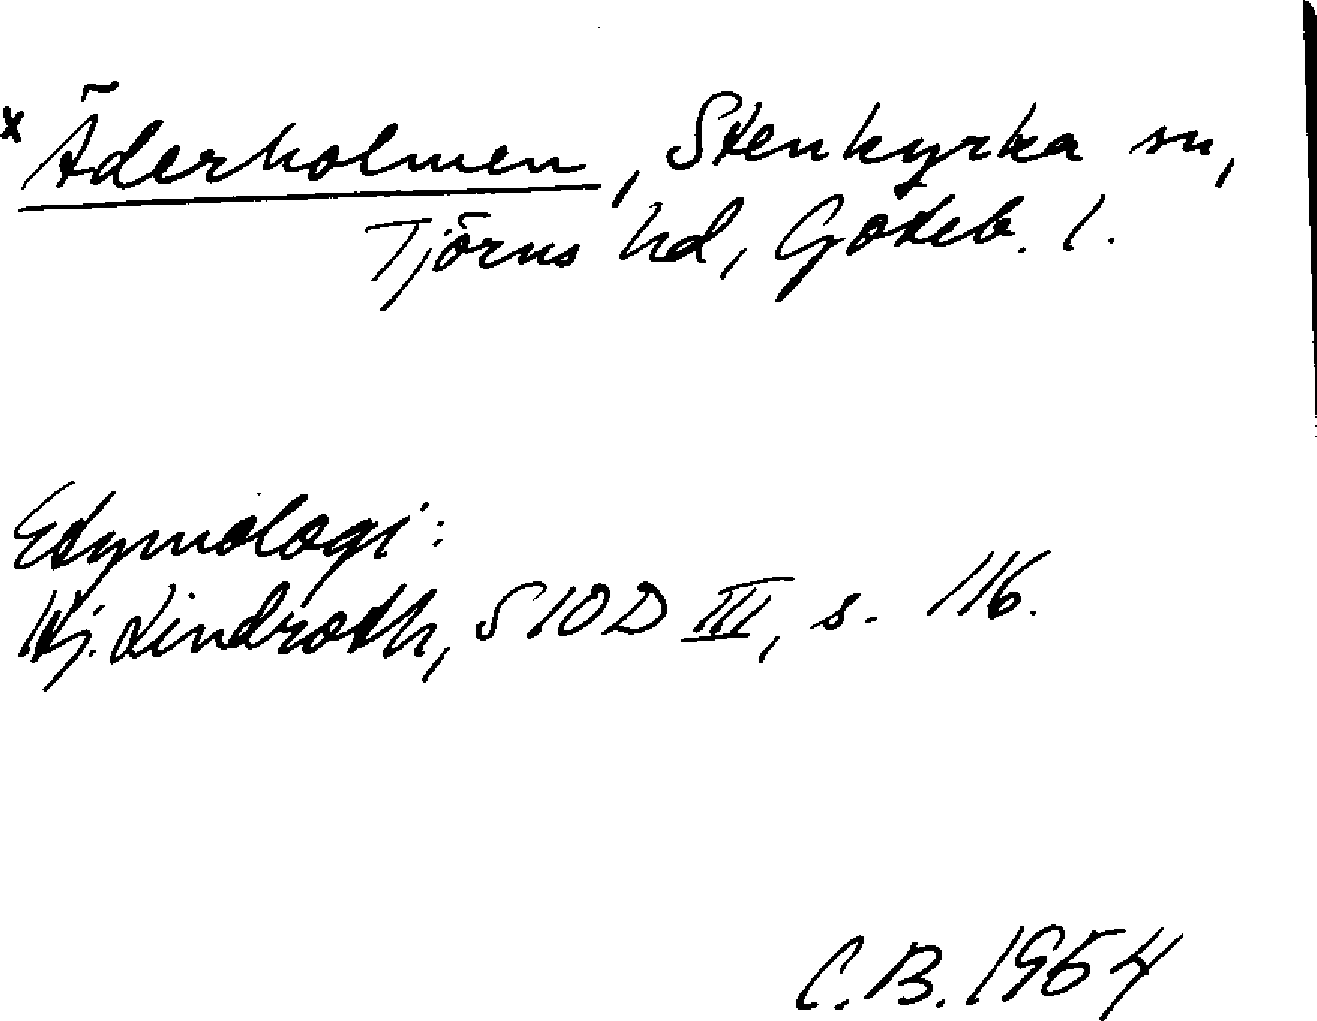 x Äderholmen, Stenkyrka sn,
Tjörns hd, Göteb. l.
Etymologi:
Hj. Lindroth, SIOD III, s. 116.
C.B. 1964